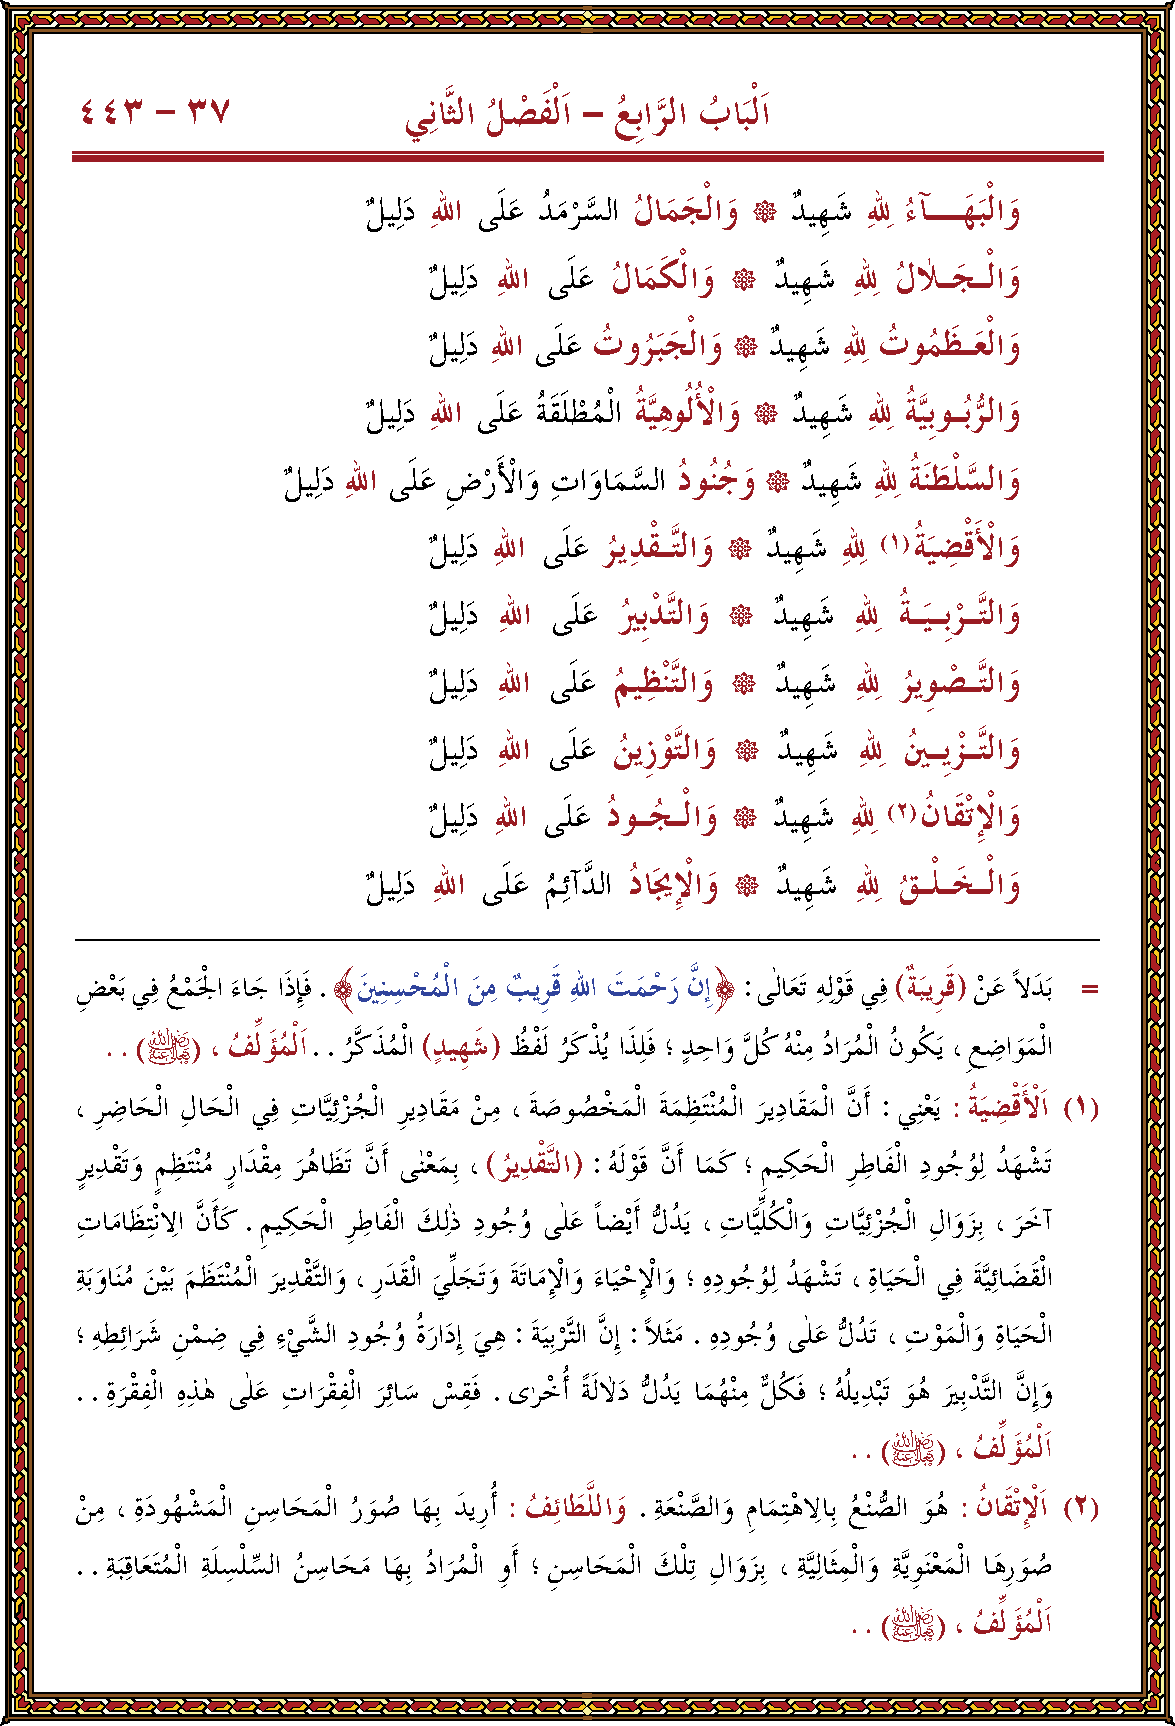 اَلْبَابُ الرَّابِعُ – اَلْفَصْلُ الثَّانِي ٣٧ – ٤٤٣
وَالْبَهَـــآءُ لِلهِ شَهِيدٌ ۞ وَالْجَمَالُ السَّرْمَدُ عَلَى اللهِ دَلِيلٌ
وَالْـجَـلَالُ لِلهِ شَهِيدٌ ۞ وَالْكَمَالُ عَلَى اللهِ دَلِيلٌ
وَالْعَـظَمُوتُ لِلهِ شَهِيدٌ ۞ وَالْجَبَرُوتُ عَلَى اللهِ دَلِيلٌ
وَالرُّبُـوبِيَّةُ لِلهِ شَهِيدٌ ۞ وَالْأُلُوهِيَّةُ الْمُطْلَقَةُ عَلَى اللهِ دَلِيلٌ
وَالسَّلْطَنَةُ لِلهِ شَهِيدٌ ۞ وَجُنُودُ السَّمَاوَاتِ وَالْأَرْضِ عَلَى اللهِ دَلِيلٌ
وَالْأَقْضِيَةُ (١) لِلهِ شَهِيدٌ ۞ وَالتَّـقْدِيرُ عَلَى اللهِ دَلِيلٌ
وَالتَّـرْبِـيَـةُ لِلهِ شَهِيدٌ ۞ وَالتَّدْبِيرُ عَلَى اللهِ دَلِيلٌ
وَالتَّـصْوِيرُ لِلهِ شَهِيدٌ ۞ وَالتَّنْظِيمُ عَلَى اللهِ دَلِيلٌ
وَالتَّـزْيِـينُ لِلهِ شَهِيدٌ ۞ وَالتَّوْزِينُ عَلَى اللهِ دَلِيلٌ
وَالْإِتْقَانُ (٢) لِلهِ شَهِيدٌ ۞ وَالْـجُـودُ عَلَى اللهِ دَلِيلٌ
وَالْـخَـلْـقُ لِلهِ شَهِيدٌ ۞ وَالْإِيجَادُ الدَّآئِمُ عَلَى اللهِ دَلِيلٌ
= بَدَلاً عَنْ (قَرِيبَةٌ) فِي قَوْلِهِ تَعَالٰى : ﴿إِنَّ رَحْمَتَ اللهِ قَرِيبٌ مِنَ الْمُحْسِنِينَ﴾ . فَإِذَا جَاءَ الْجَمْعُ فِي بَعْضِ
الْمَوَاضِعِ ، يَكُونُ الْمُرَادُ مِنْهُ كُلَّ وَاحِدٍ ؛ فَلِذَا يُذْكَرُ لَفْظُ (شَهِيدٍ) الْمُذَكَّرُ . . اَلْمُؤَلِّفُ ، (رضي الله تعالى عنه) . .
(١) اَلْأَقْضِيَةُ : يَعْنِي : أَنَّ الْمَقَادِيرَ الْمُنْتَظِمَةَ الْمَخْصُوصَةَ ، مِنْ مَقَادِيرِ الْجُزْئِيَّاتِ فِي الْحَالِ الْحَاضِرِ ،
تَشْهَدُ لِوُجُودِ الْفَاطِرِ الْحَكِيمِ ؛ كَمَا أَنَّ قَوْلَهُ : (التَّقْدِيرُ) ، بِمَعْنٰى أَنَّ تَظَاهُرَ مِقْدَارٍ مُنْتَظِمٍ وَتَقْدِيرٍ
آخَرَ ، بِزَوَالِ الْجُزْئِيَّاتِ وَالْكُلِّيَّاتِ ، يَدُلُّ أَيْضاً عَلٰى وُجُودِ ذٰلِكَ الْفَاطِرِ الْحَكِيمِ . كَأَنَّ الِانْتِظَامَاتِ
الْقَضَائِيَّةَ فِي الْحَيَاةِ ، تَشْهَدُ لِوُجُودِهِ ؛ وَالْإِحْيَاءَ وَالْإِمَاتَةَ وَتَجَلِّيَ الْقَدَرِ ، وَالتَّقْدِيرَ الْمُنْتَظَمَ بَيْنَ مُنَاوَبَةِ
الْحَيَاةِ وَالْمَوْتِ ، تَدُلُّ عَلٰى وُجُودِهِ . مَثَلاً : إِنَّ التَّرْبِيَةَ : هِيَ إِدَارَةُ وُجُودِ الشَّيْءِ فِي ضِمْنِ شَرَائِطِهِ ؛
وَإِنَّ التَّدْبِيرَ هُوَ تَبْدِيلُهُ ؛ فَكُلٌّ مِنْهُمَا يَدُلُّ دَلَالَةً أُخْرٰى . فَقِسْ سَائِرَ الْفِقْرَاتِ عَلٰى هٰذِهِ الْفِقْرَةِ . .
اَلْمُؤَلِّفُ ، (رضي الله تعالى عنه) . .
(٢) اَلْإِتْقَانُ : هُوَ الصُّنْعُ بِالِاهْتِمَامِ وَالصَّنْعَةِ . وَاللَّطَائِفُ : أُرِيدَ بِهَا صُوَرُ الْمَحَاسِنِ الْمَشْهُودَةِ ، مِنْ
صُوَرِهَا الْمَعْنَوِيَّةِ وَالْمِثَالِيَّةِ ، بِزَوَالِ تِلْكَ الْمَحَاسِنِ ؛ أَوِ الْمُرَادُ بِهَا مَحَاسِنُ السِّلْسِلَةِ الْمُتَعَاقِبَةِ . .
اَلْمُؤَلِّفُ ، (رضي الله تعالى عنه) . .